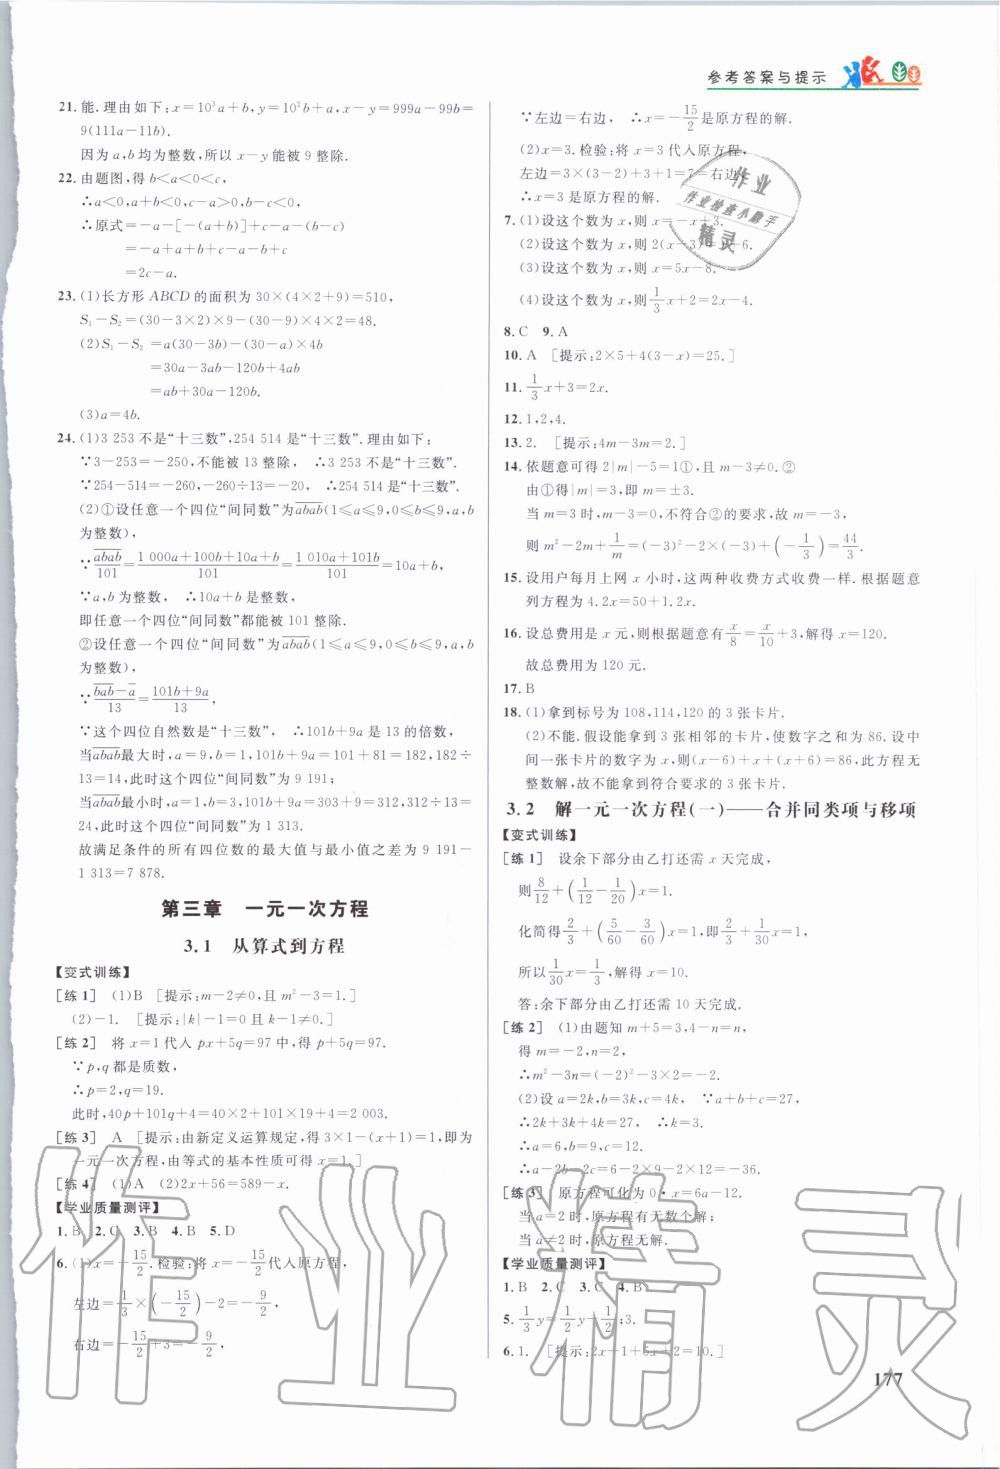 参考答案与提示
21.能.理由如下:x=10³a+b,y=10²b+a,x-y=999a-99b=
9(111a-11b).
因为 a,b 均为整数,所以 x-y 能被 9 整除.
22.由题图,得 b<a<0<c,
∴a<0,a+b<0,c-a>0,b-c<0,
∴原式=-a-[-(a+b)]+c-a-(c-b)
=-a+a+b+c-a-b+c
=2c-a.
23.(1)长方形 ABCD 的面积为 30×(4×2+9)=510,
S₁-S₂=(30-3×2)×9-(30-9)×4×2=48.
(2)S₁-S₂=a(30-3b)-(30-a)×4b
=30a-3ab-120b+4ab
=ab+30a-120b.
(3)a=4b.
24.(1)3 253 不是“十三数”,254 514 是“十三数”.理由如下:
∵3-253=-250,不能被 13 整除, ∴3 253 不是“十三数”.
∵254-514=-260,-260÷13=-20, ∴254 514 是“十三数”.
(2)①设任意一个四位“间同数”为abab(1≤a≤9,0≤b≤9,a,b
为整数),
∵abab/101=(1 000a+100b+10a+b)/101=(1 010a+101b)/101=10a+b,
∵a,b 为整数, ∴10a+b 是整数,
即任意一个四位“间同数”都能被 101 整除.
②设任意一个四位“间同数”为abab(1≤a≤9,0≤b≤9,a,b
为整数),
∵(bab-a)/13=(101b+9a)/13,
∵这个四位自然数是“十三数”, ∴101b+9a 是 13 的倍数,
当abab最大时,a=9,b=1,101b+9a=101+81=182,182÷
13=14,此时这个四位“间同数”为 9 191;
当abab最小时,a=1,b=3,101b+9a=303+9=312,312÷13=
24,此时这个四位“间同数”为 1 313.
故满足条件的所有四位数的最大值与最小值之差为 9 191-
1 313=7 878.
第三章 一元一次方程
3.1 从算式到方程
【变式训练】
[练 1] (1)B [提示:m-2≠0,且 m²-3=1.]
(2)-1. [提示:|k|-1=0 且 k-1≠0.]
[练 2] 将 x=1 代入 px+5q=97 中,得 p+5q=97.
∵p,q 都是质数,
∴p=2,q=19.
此时,40p+101q+4=40×2+101×19+4=2 003.
[练 3] A [提示:由新定义运算规定,得 3×1-(x+1)=1,即为
一元一次方程,由等式的基本性质可得 x=1.]
[练 4] (1)A (2)2x+56=589-x.
【学业质量测评】
1.B 2.C 3.B 4.B 5.D
6.(1)x=-15/2.检验:将 x=-15/2代入原方程,
左边=1/3×(-15/2)-2=-9/2,
右边=-15/2+3=-9/2,
∵左边=右边, ∴x=-15/2是原方程的解.
(2)x=3.检验:将 x=3 代入原方程,
左边=3×(3-2)+3+1=7=右边,
∴x=3 是原方程的解.
7.(1)设这个数为 x,则 x=-x+3.
(2)设这个数为 x,则 2(x-3)=x+6.
(3)设这个数为 x,则 x=5x-8.
(4)设这个数为 x,则1/3x+2=2x-4.
8.C 9.A
10.A [提示:2×5+4(3-x)=25.]
11.1/3x+3=2x.
12.1,2,4.
13.2. [提示:4m-3m=2.]
14.依题意可得 2|m|-5=1①,且 m-3≠0.②
由①得|m|=3,即 m=±3.
当 m=3 时,m-3=0,不符合②的要求,故 m=-3,
则 m²-2m+1/m=(-3)²-2×(-3)+(-1/3)=44/3.
15.设用户每月上网 x 小时,这两种收费方式收费一样.根据题意
列方程为 4.2x=50+1.2x.
16.设总费用是 x 元,则根据题意有x/8=x/10+3,解得 x=120.
故总费用为 120 元.
17.B
18.(1)拿到标号为 108,114,120 的 3 张卡片.
(2)不能.假设能拿到 3 张相邻的卡片,使数字之和为 86.设中
间一张卡片的数字为 x,则(x-6)+x+(x+6)=86,此方程无
整数解,故不能拿到符合要求的 3 张卡片.
3.2 解一元一次方程(一)——合并同类项与移项
【变式训练】
[练 1] 设余下部分由乙打还需 x 天完成,
则8/12+(1/12-1/20)x=1.
化简得2/3+(5/60-3/60)x=1,即2/3+1/30x=1,
所以1/30x=1/3,解得 x=10.
答:余下部分由乙打还需 10 天完成.
[练 2] (1)由题知 m+5=3,4-n=n,
得 m=-2,n=2,
∴m²-3n=(-2)²-3×2=-2.
(2)设 a=2k,b=3k,c=4k, ∵a+b+c=27,
∴2k+3k+4k=27, ∴k=3.
∴a=6,b=9,c=12.
∴a-2b-2c=6-2×9-2×12=-36.
[练 3] 原方程可化为 0·x=6a-12.
当 a=2 时,原方程有无数个解;
当 a≠2 时,原方程无解.
【学业质量测评】
1.B 2.C 3.C 4.B
5.1/3y=1/2y+1/2;3.
6.1. [提示:2x+1+5x+2=10.]
177
作业
作业检查小助手
精灵
作业精灵